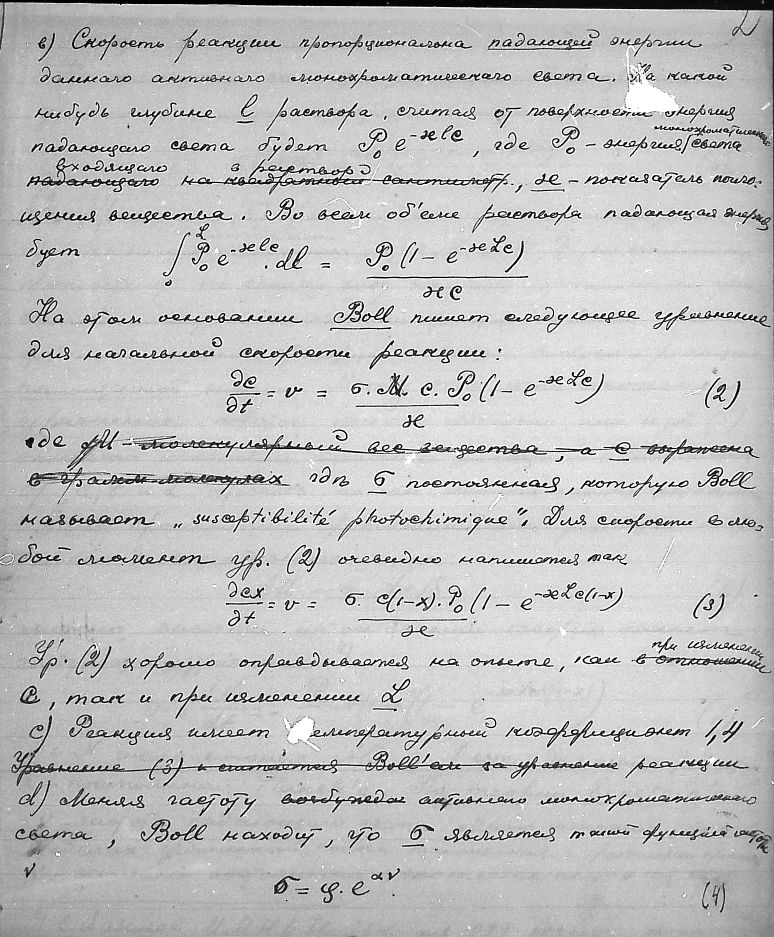 2
в) Скорость реакции пропорциональна падающей энергии
даннаго активнаго монохроматическаго света. На какой
нибудь глубине l раствора, считая от поверхности энергия
падающаго света будет P₀e^(-ϰlc), где P₀ - энергия монохроматическаго света
входящаго в раствор
падающаго на квадратный сантиметр, ϰ - показатель погло-
щения вещества. Во всем об'еме раствора падающая энергия
будет ∫₀^L P₀e^(-ϰlc) . dl = P₀(1 - e^(-ϰLc)) / ϰc
На этом основании Boll пишет следующее уравнение
для начальной скорости реакции:
∂c/∂t = v = σ. M. c. P₀(1 - e^(-ϰLc)) / ϰ (2)
где M - молекулярный вес вещества, а c выражена
в грамм молекулах где σ постоянная, которую Boll
называет „susceptibilité photochimique". Для скорости в лю-
бой момент ур. (2) очевидно напишется так
∂cx/∂t = v = σ. c(1-x). P₀(1 - e^(-ϰLc(1-x))) / ϰ (3)
Ур. (2) хорошо оправдывается на опыте, как в отношении при изменении
c, так и при изменении L
c) Реакция имеет температурный коэффициент 1,4
Уравнение (3) и считается Boll'ем за уравнение реакции
d) Меняя частоту возбужда активнаго монохроматическаго
света, Boll находит, что σ является такой функцией частоты
ν
σ = φ. e^(αν) (4)